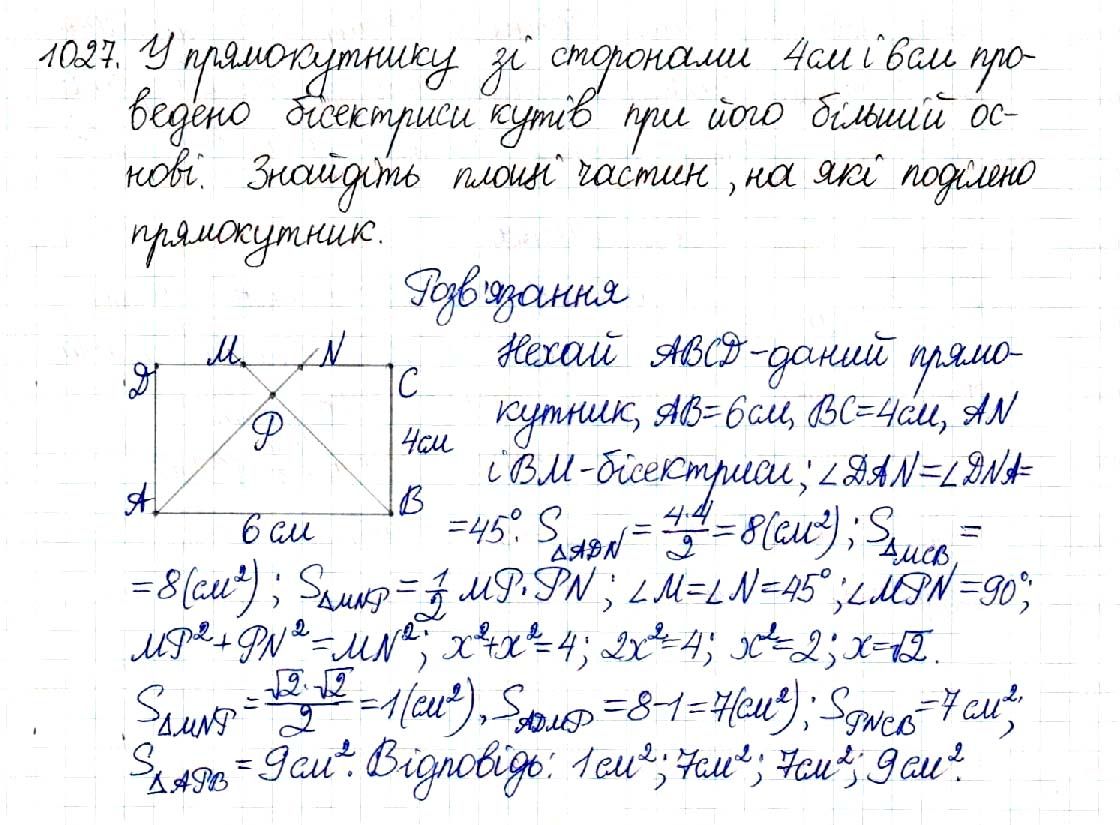 1027. У прямокутнику зі сторонами 4см і 6см про-
ведено бісектриси кутів при його більшій ос-
нові. Знайдіть площі частин, на які поділено
прямокутник.
Розв'язання
M N
D C
P
4см
A B
6 см
Нехай ABCD-даний прямо-
кутник, AB=6см, BC=4см, AN
і BM-бісектриси; ∠DAN=∠DNA=
=45°. S△ADN = 4·4/2 = 8(см²); S△MCB =
=8(см²); S△MNP = 1/2 MP·PN; ∠M=∠N=45°; ∠MPN=90°;
MP²+PN²=MN²; x²+x²=4; 2x²=4; x²=2; x=√2.
S△MNP = √2·√2/2 = 1(см²), SADMP = 8-1=7(см²); SPNCB = 7см²;
S△APB = 9см². Відповідь: 1см²; 7см²; 7см²; 9см².